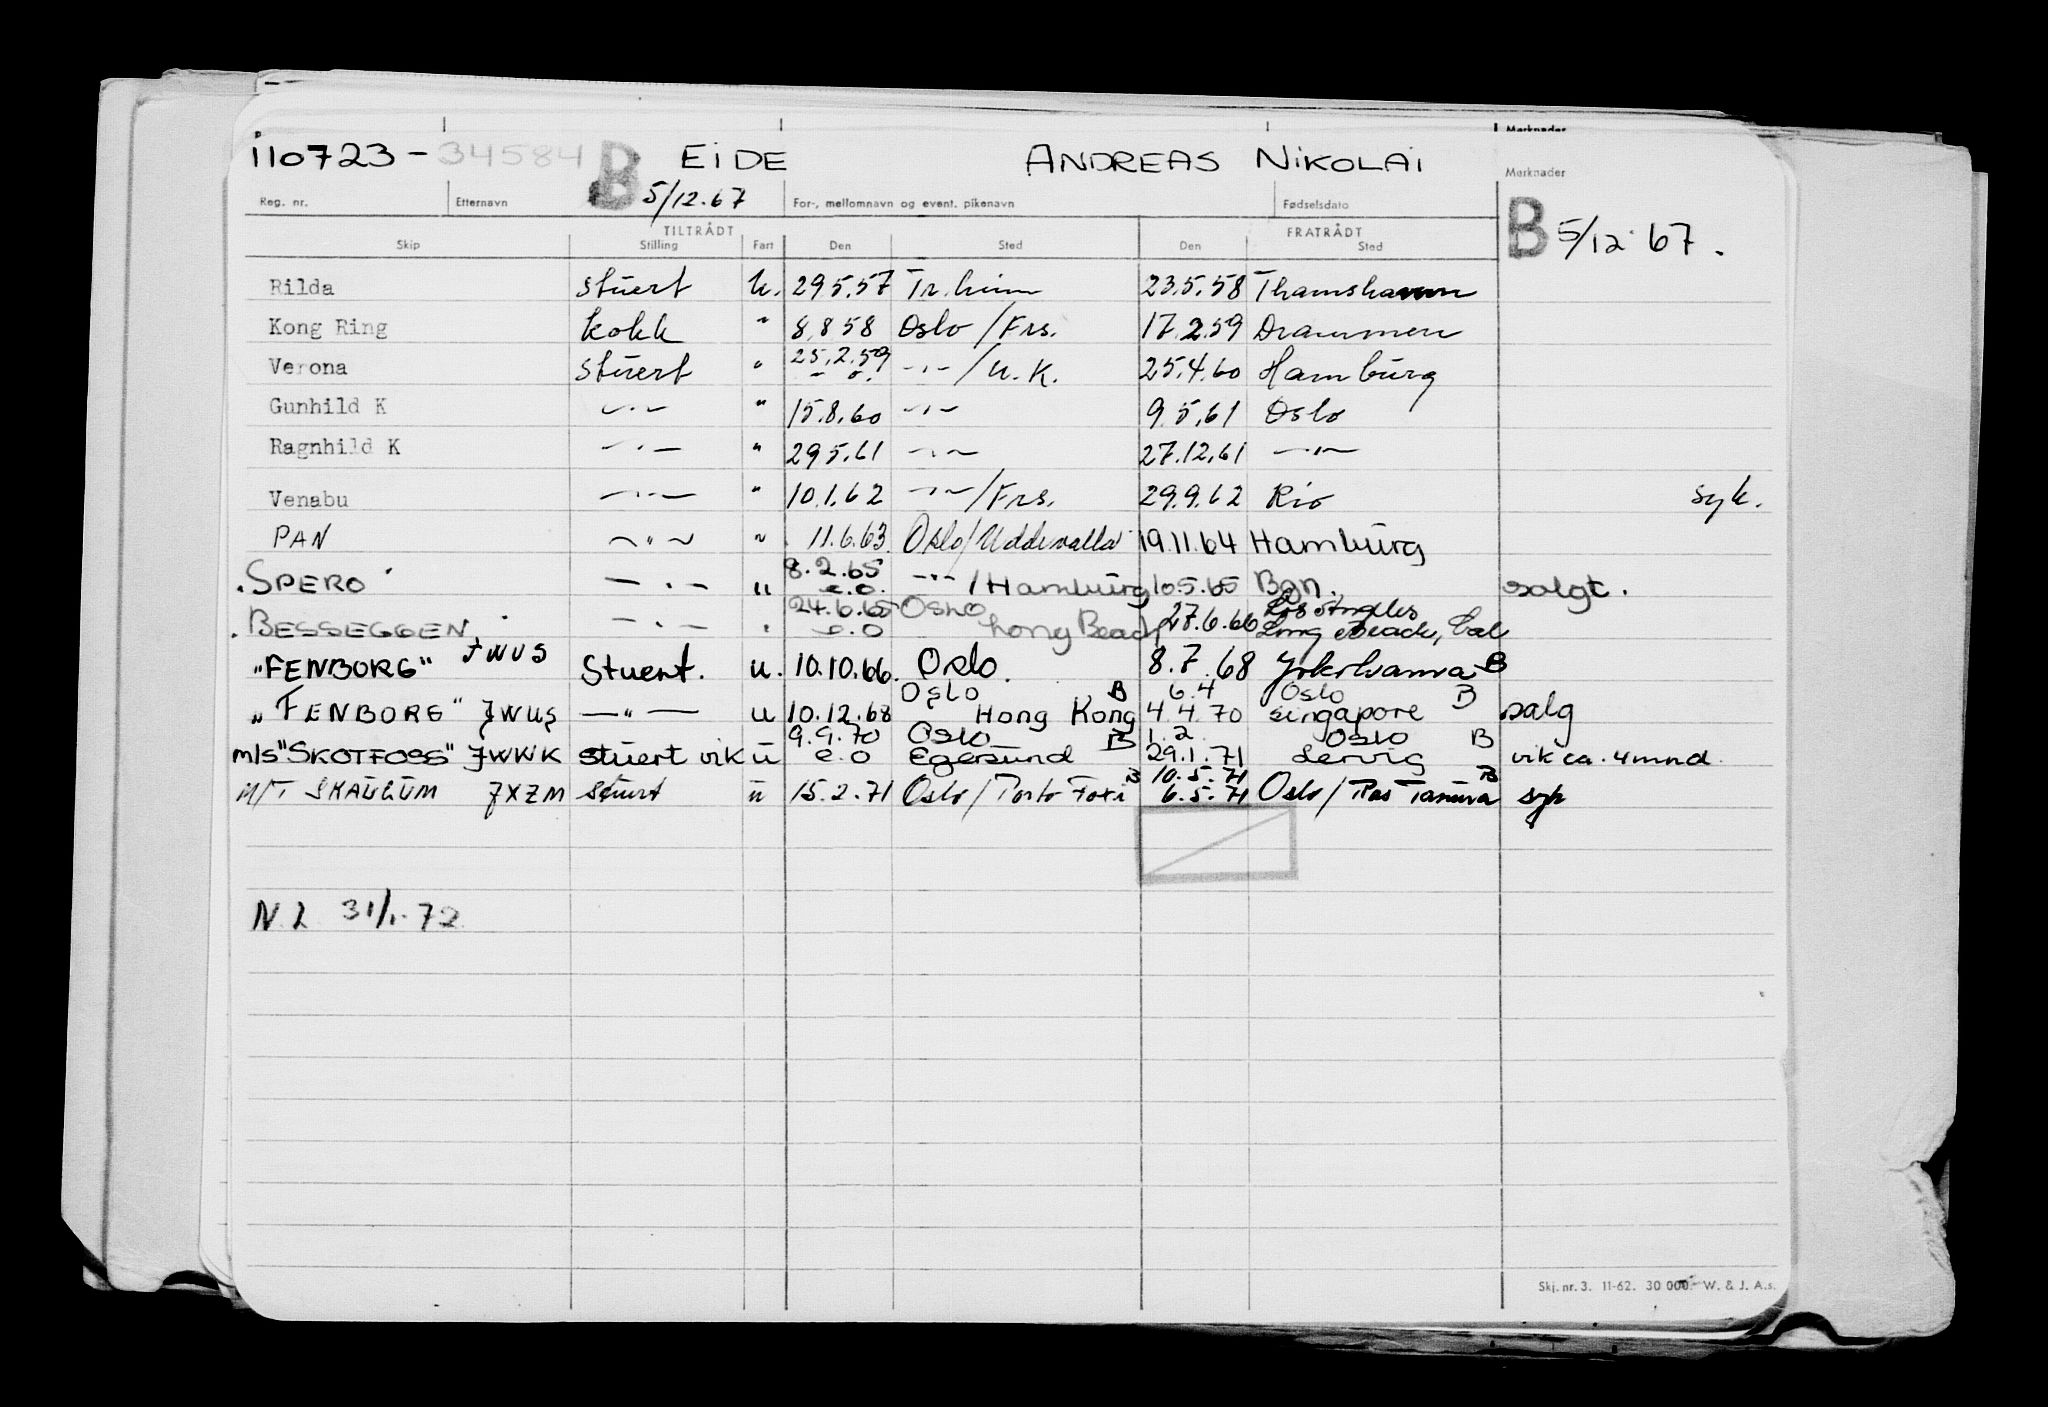 Merknader
110723-34584 B EIDE ANDREAS NIKOLAI Merknader
Reg. nr. Etternavn 5/12.67 For-, mellomnavn og event. pikenavn Fødselsdato
B 5/12.67.
TILTRÅDT FRATRÅDT
Skip Stilling Fart Den Sted Den Sted
Rilda stuert u. 29.5.57 Tr.heim 23.5.58 Thamshamn
Kong Ring kokk " 8.8.58 Oslo/Frs. 17.2.59 Drammen
Verona stuert " 25.2.59 -"-/U.K. 25.4.60 Hamburg
Gunhild K -"- " 15.8.60 -"- 9.5.61 Oslo
Ragnhild K -"- " 29.5.61 -"- 27.12.61 -"-
Venabu -"- " 10.1.62 -"-/Frs. 29.9.62 Rio syk.
PAN -"- " 11.6.63 Oslo/Uddevalla 19.11.64 Hamburg
8.2.65
"SPERO" -"- u e.o. -"-/Hamburg 10.5.65 Bgn. solgt.
24.6.65 Oslo Los Angeles
"BESSEGGEN" -"- " e.o Long Beach 27.6.66 Long Beach, Cal
"FENBORG" JWUS Stuert. u. 10.10.66. Oslo. 8.7.68 Yokohama B
Oslo B 6.4 Oslo B
"FENBORG" JWUS -"- u 10.12.68 Hong Kong 4.4.70 Singapore salg
9.9.70 Oslo B 1.2. Oslo B
m/s "SKOTFOSS" JWWK stuert vik u e.o Egersund 29.1.71 Lervig vik ca. 4mnd.
B 10.5.71 B
M/T SKAUGUM JXZM stuert u 15.2.71 Oslo/Porto Foxi 6.5.71 Oslo/Ras Tanura syk
N.L 31/1.72.
Skj. nr. 3. 11-62. 30 000. W. & J. A.s.